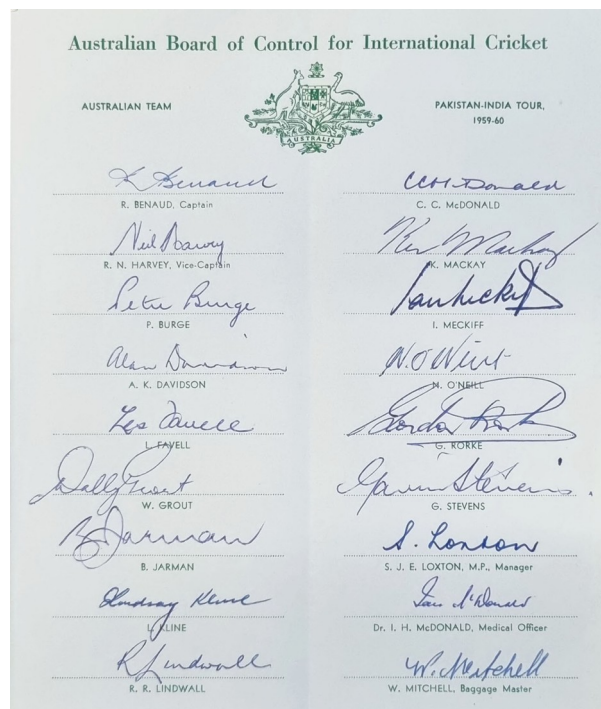 Australian Board of Control for International Cricket
AUSTRALIAN TEAM
PAKISTAN-INDIA TOUR,
1959-60
AUSTRALIA
R Benaud
R. BENAUD, Captain
Neil Harvey
R. N. HARVEY, Vice-Captain
Peter Burge
P. BURGE
Alan Davidson
A. K. DAVIDSON
Les Favell
L. FAVELL
Wally Grout
W. GROUT
B Jarman
B. JARMAN
Lindsay Kline
L. KLINE
R Lindwall
R. R. LINDWALL
CCMcDonald
C. C. McDONALD
Ken Mackay
K. MACKAY
Ian Meckiff
I. MECKIFF
N. O'Neill
N. O'NEILL
Gordon Rorke
G. RORKE
Gavin Stevens
G. STEVENS
S. Loxton
S. J. E. LOXTON, M.P., Manager
Ian McDonald
Dr. I. H. McDONALD, Medical Officer
W. Mitchell
W. MITCHELL, Baggage Master